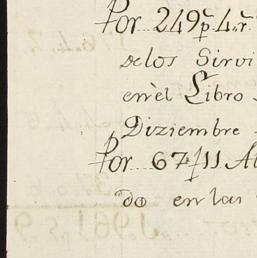 Por 249p̃ 4r̃
delos Sirvi
en èl Libro
Diziembre
Por 67p 11 A
do en las